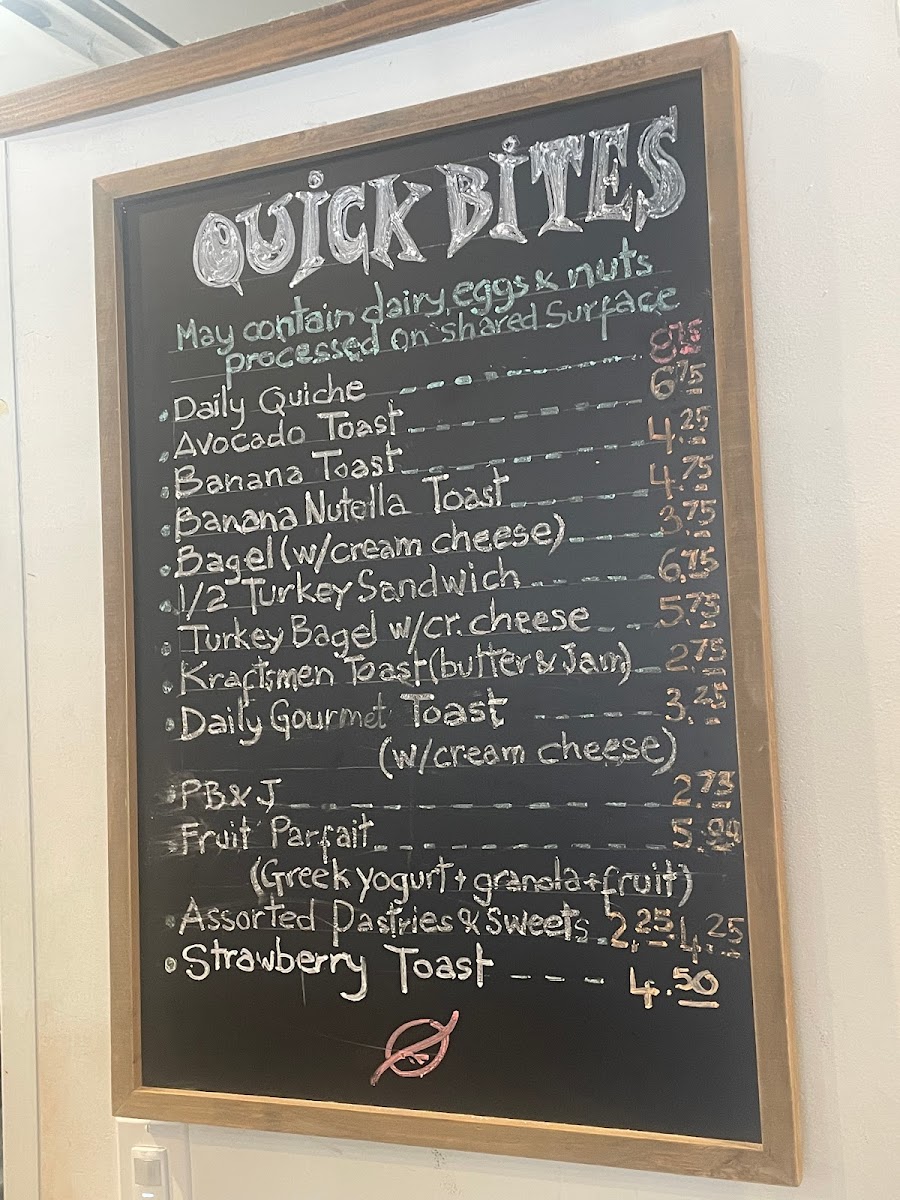 QUICK BITES
May contain dairy, eggs & nuts
processed on shared Surface
• Daily Quiche 8.75
• Avocado Toast 6.75
• Banana Toast 4.25
• Banana Nutella Toast 4.75
• Bagel (w/cream cheese) 3.75
• 1/2 Turkey Sandwich 6.75
• Turkey Bagel w/cr. cheese 5.75
• Kraftsmen Toast (butter & Jam) 2.75
• Daily Gourmet Toast 3.25
(w/cream cheese)
• PB & J 2.75
• Fruit Parfait 5.99
(Greek yogurt + granola + fruit)
• Assorted Pastries & Sweets 2.25 4.25
• Strawberry Toast 4.50